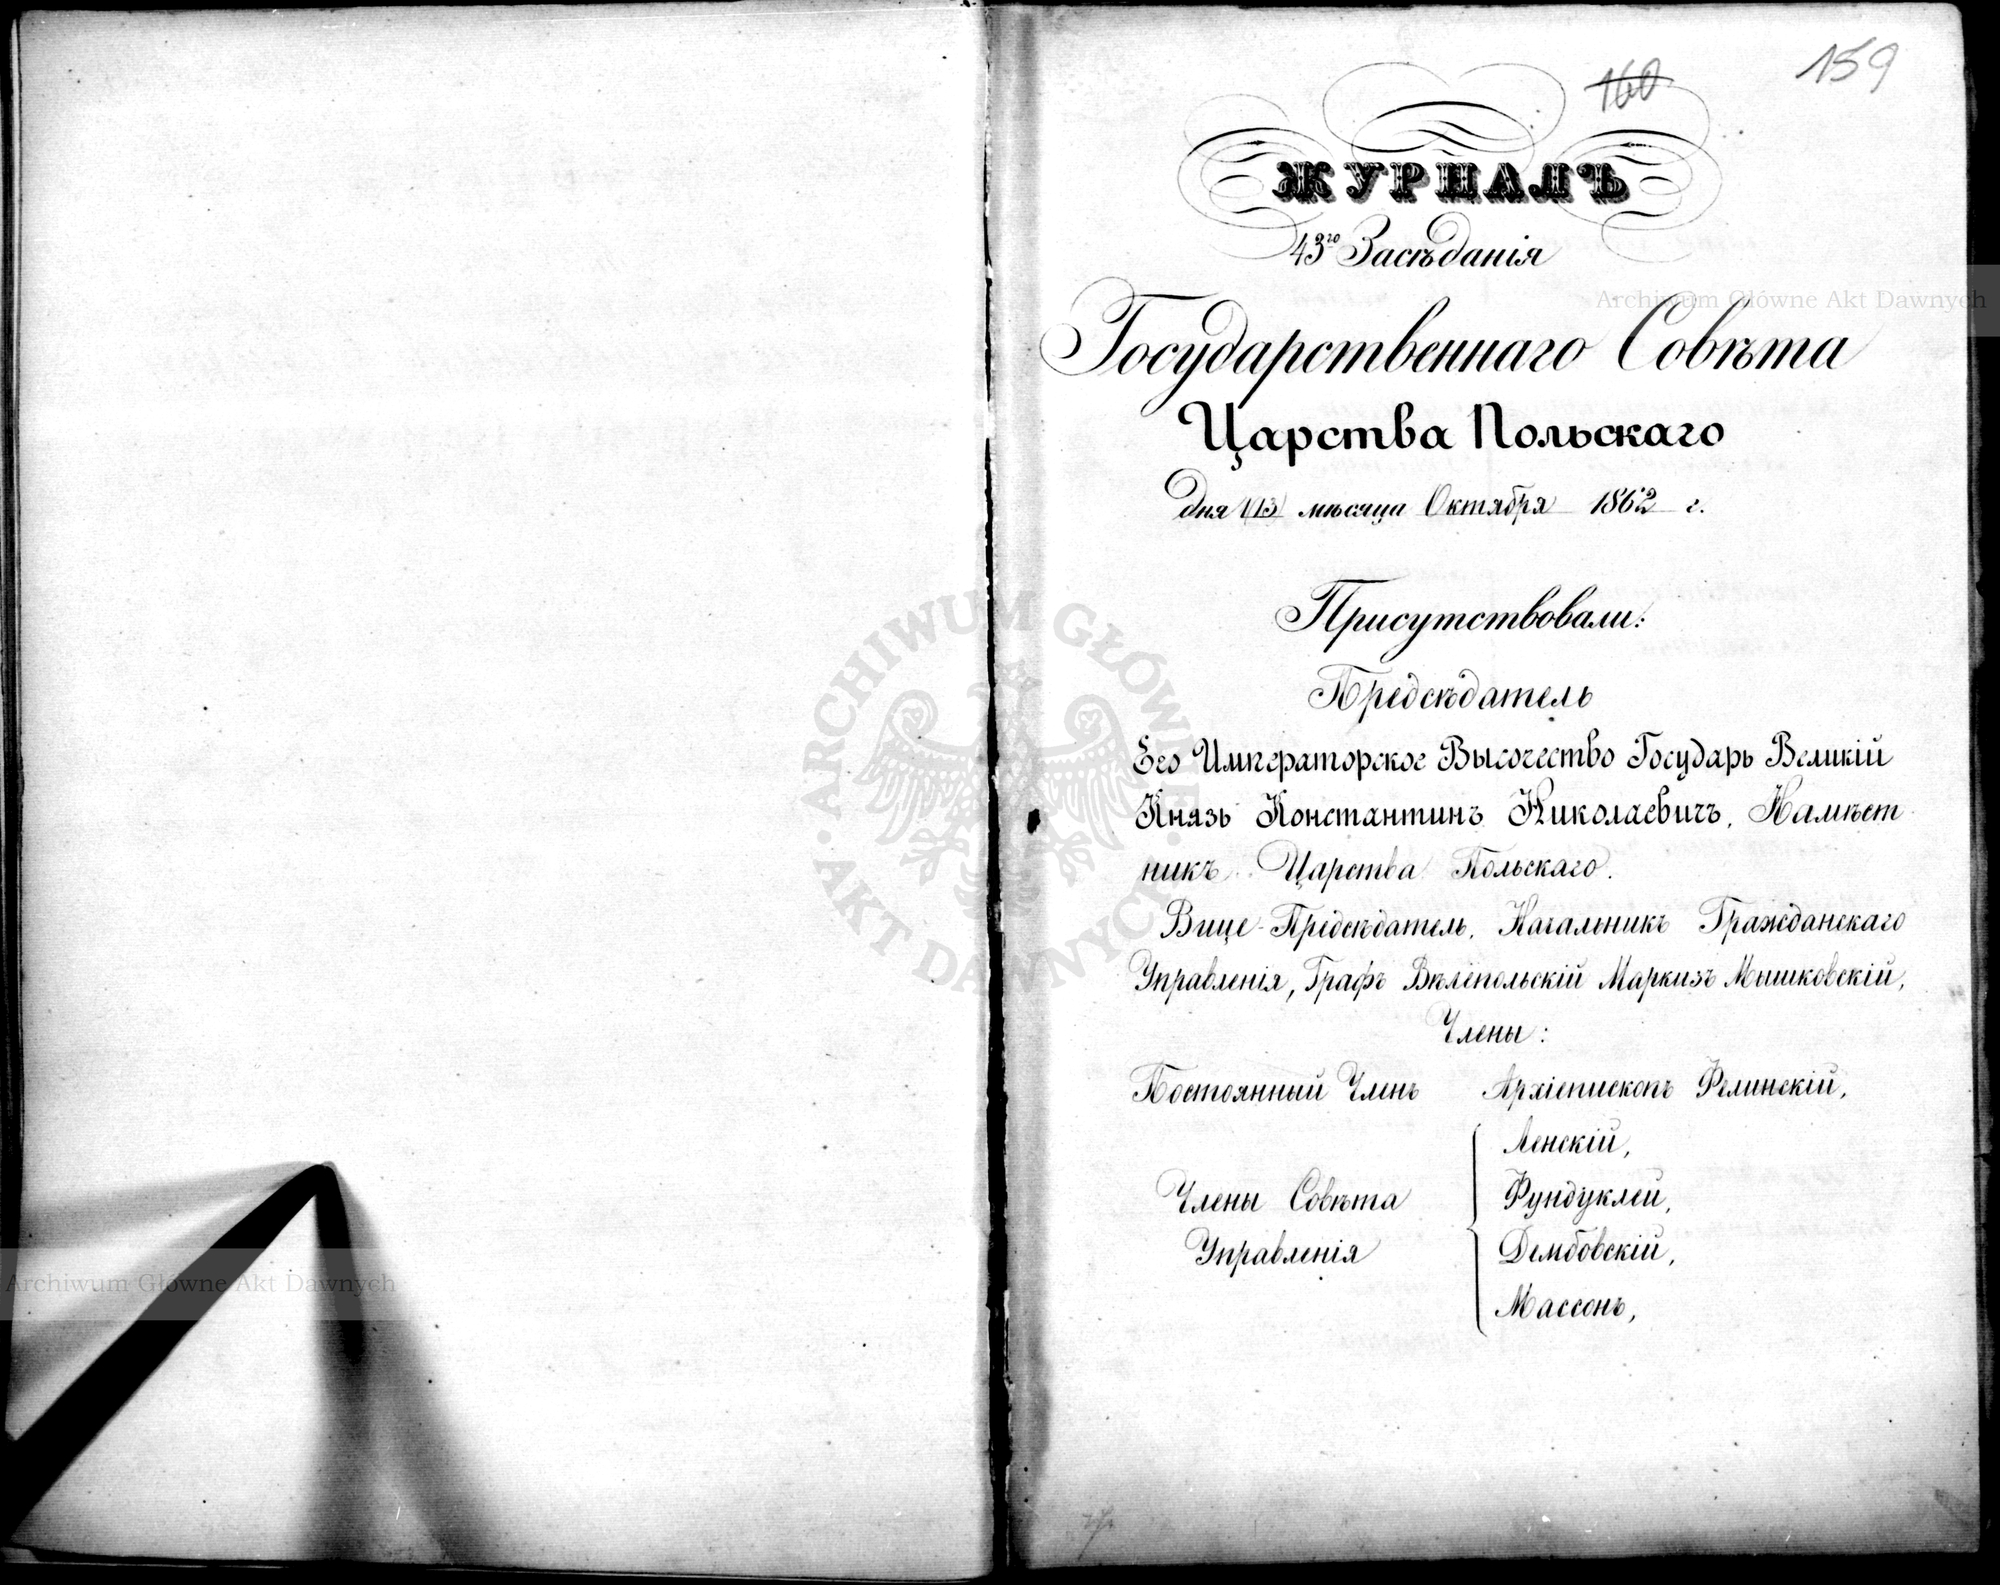 159
160
ЖУРНАЛЪ
43го Засѣданія
Государственнаго Совѣта
Царства Польскаго
Дня 1/13 мѣсяца Октября 1862 г.
Присутствовали:
Предсѣдатель
Его Императорское Высочество Государь Великій
Князь Константинъ Николаевичъ, Намѣст
никъ Царства Польскаго.
Вице-Предсѣдатель, Начальникъ Гражданскаго
Управленія, Графъ Вѣлёпольскій Маркизъ Мышковскій,
Члены:
Постоянный Членъ Архіепископъ Фелинскій,
Ленскій,
Фундуклей,
Члены Совѣта
Управленія
Дембовскій,
Массонъ,
Archiwum Główne Akt Dawnych
Archiwum Główne Akt Dawnych
ARCHIWUM GŁÓWNE
AKT DAWNYCH